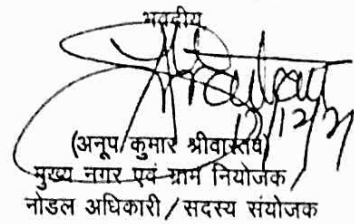 भवदीय
17/12/21
(अनूप कुमार श्रीवास्तव)
मुख्य नगर एवं ग्राम नियोजक/
नोडल अधिकारी/सदस्य संयोजक